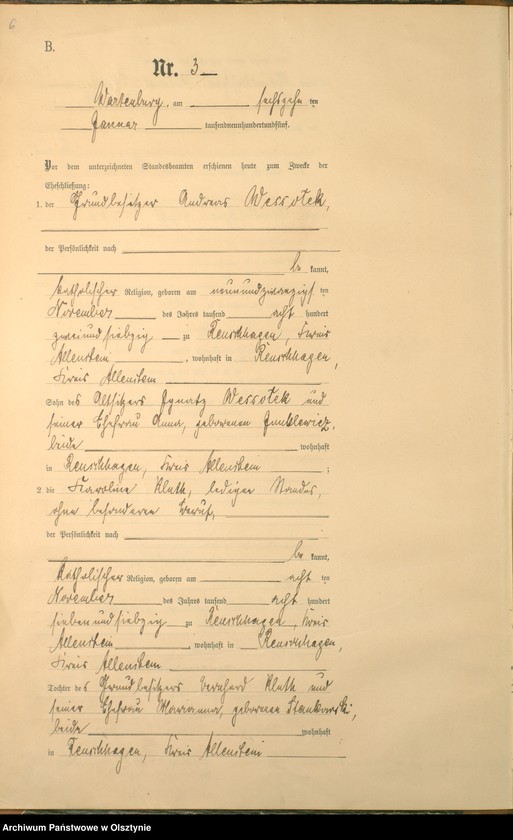 6
B.
Nr. 3
Wartenburg, am sechszehn ten
Januar tausendneunhundertundfünf.
Vor dem unterzeichneten Standesbeamten erschienen heute zum Zwecke der
Eheschließung:
1. der Grundbesitzer Andreas Wessolek,
der Persönlichkeit nach
be kannt,
katholischer Religion, geboren am neunundzwanzigsten
November des Jahres tausend acht hundert
zweiundsiebzig zu Reuschhagen, Kreis
Allenstein, wohnhaft in Reuschhagen,
Kreis Allenstein
Sohn des Altsitzers Ignatz Wessolek und
seiner Ehefrau Anna, geborenen
beide wohnhaft
in Reuschhagen, Kreis Allenstein ;
2. die Karoline Kluth, ledigen Standes,
ohne besonderen Beruf,
der Persönlichkeit nach
be kannt,
katholischer Religion, geboren am acht ten
November des Jahres tausend acht hundert
siebenundsiebzig zu Reuschhagen, Kreis
Allenstein, wohnhaft in Reuschhagen,
Kreis Allenstein
Tochter des Grundbesitzers Bernhard Kluth und
seiner Ehefrau Marianna, geborenen
beide wohnhaft
in Reuschhagen, Kreis Allenstein
Archiwum Państwowe w Olsztynie